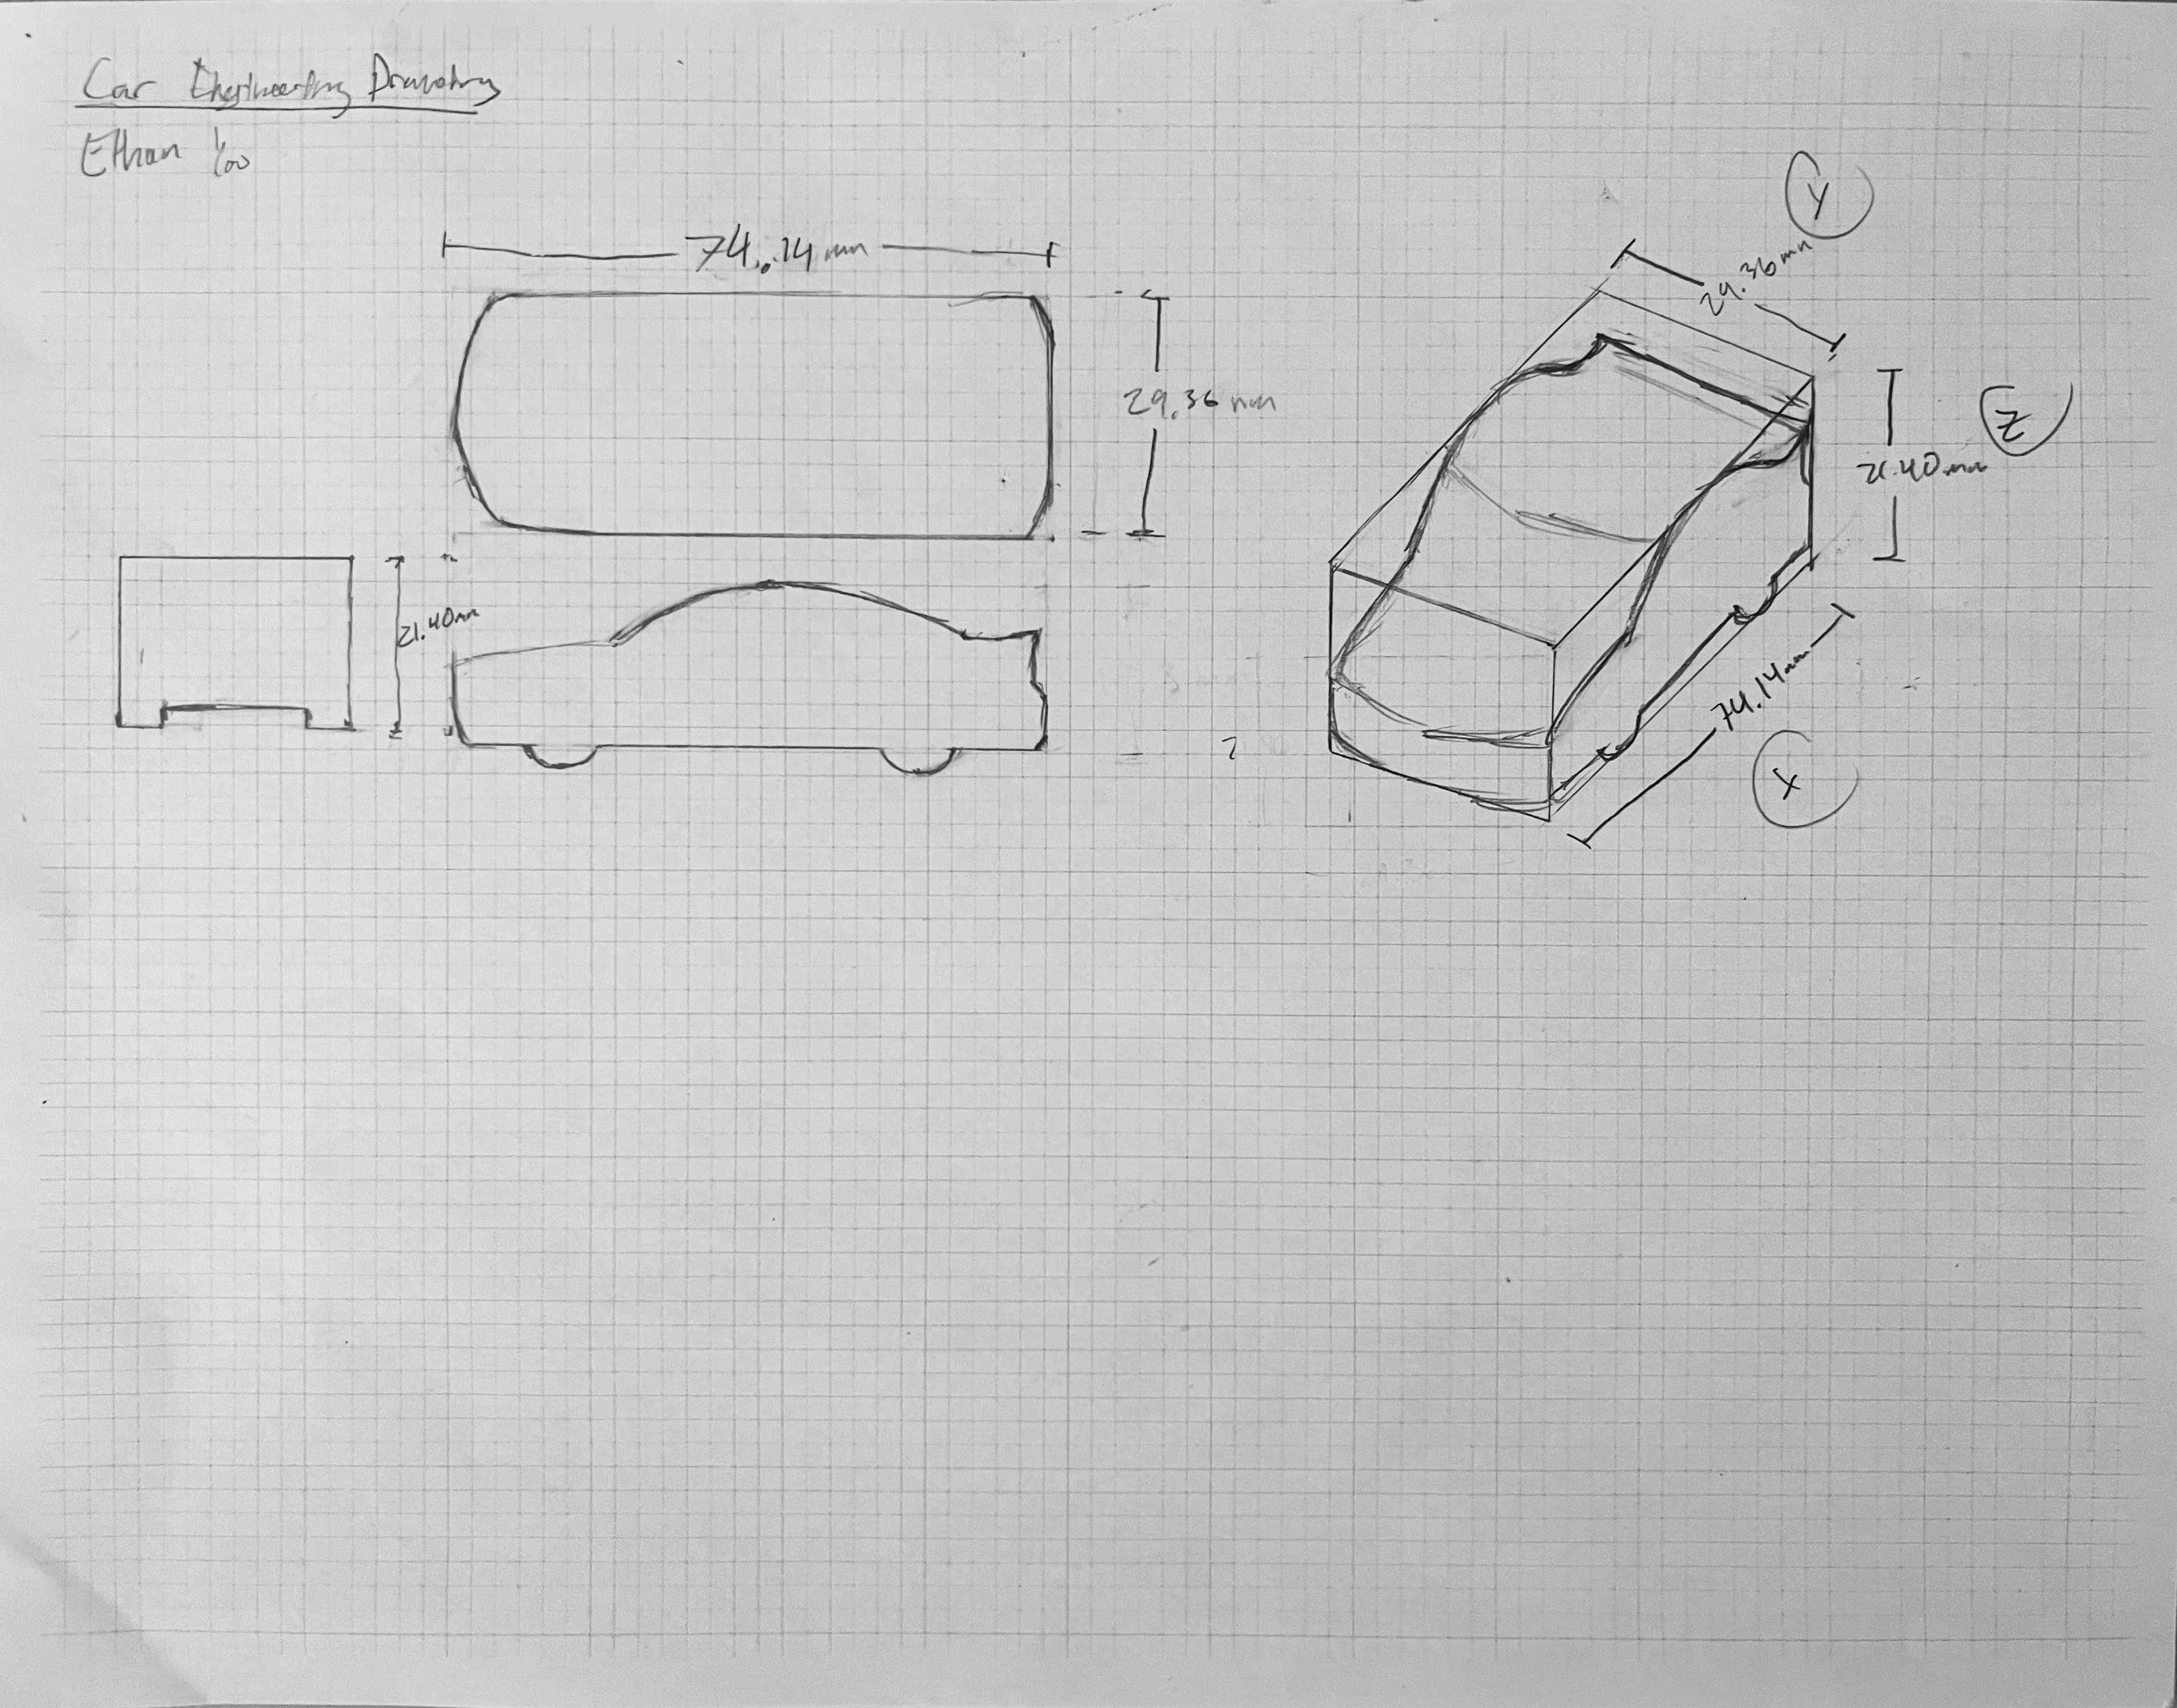 Car Engineering Drawing
Ethan Yoo
74.14mm
29.36mm
21.40mm
Y
29.36mm
Z
21.40mm
74.14mm
X